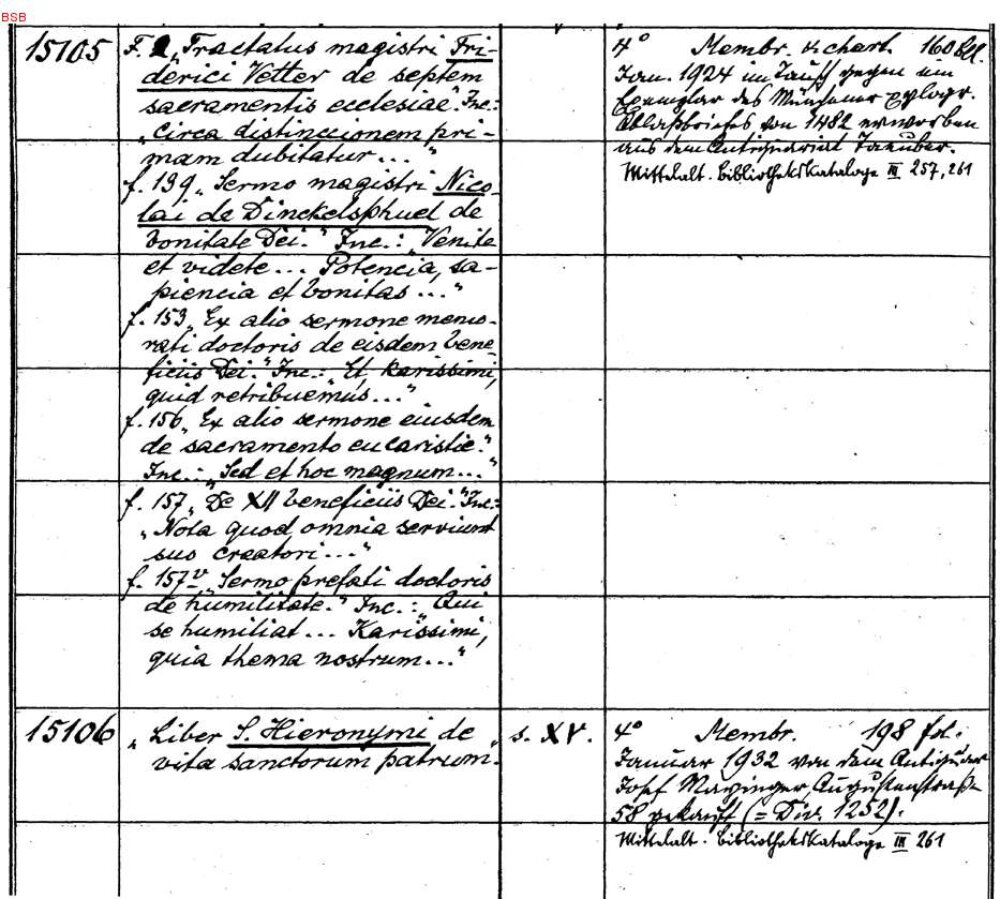 BSB
15105
F. 2 „Tractatus magistri Fri-
derici Vetter de septem
sacramentis ecclesiae." Inc.:
„Circa distinccionem pri-
mam dubitatur ..."
f. 139 „Sermo magistri Nico-
lai de Dinckelsphuel de
bonitate Dei." Inc.: „Venite
et videte ... Potencia, sa-
piencia et bonitas ..."
f. 153 „Ex alio sermone memo-
rati doctoris de eisdem bene-
ficiis Dei." Inc.: „Et, karissimi,
quid retribuemus ..."
f. 156 „Ex alio sermone eiusdem
de sacramento eucaristie."
Inc.: „Sed et hoc magnum ..."
f. 157 „De XII beneficiis Dei." Inc.:
„Nota quod omnia serviunt
suo creatori ..."
f. 157v „Sermo prefati doctoris
de humilitate." Inc.: „Qui
se humiliat ... Karissimi,
quia thema nostrum ..."
4° Membr. & chart. 160 Bll.
Jan. 1924 im Tausch gegen ein
Exemplar des Münchener xylogr.
Ablaßbriefes von 1482 erworben
aus dem Antiquariat Tauber.
Mittelalt. Bibliothekskataloge III 257, 261
15106
„Liber S. Hieronymi de
vita sanctorum patrum."
s. XV.
4° Membr. 198 fol.
Januar 1932 von dem Antiquar
Josef Mayinger, Augustenstraße
58 gekauft (= Div. 1252).
Mittelalt. Bibliothekskataloge III 261